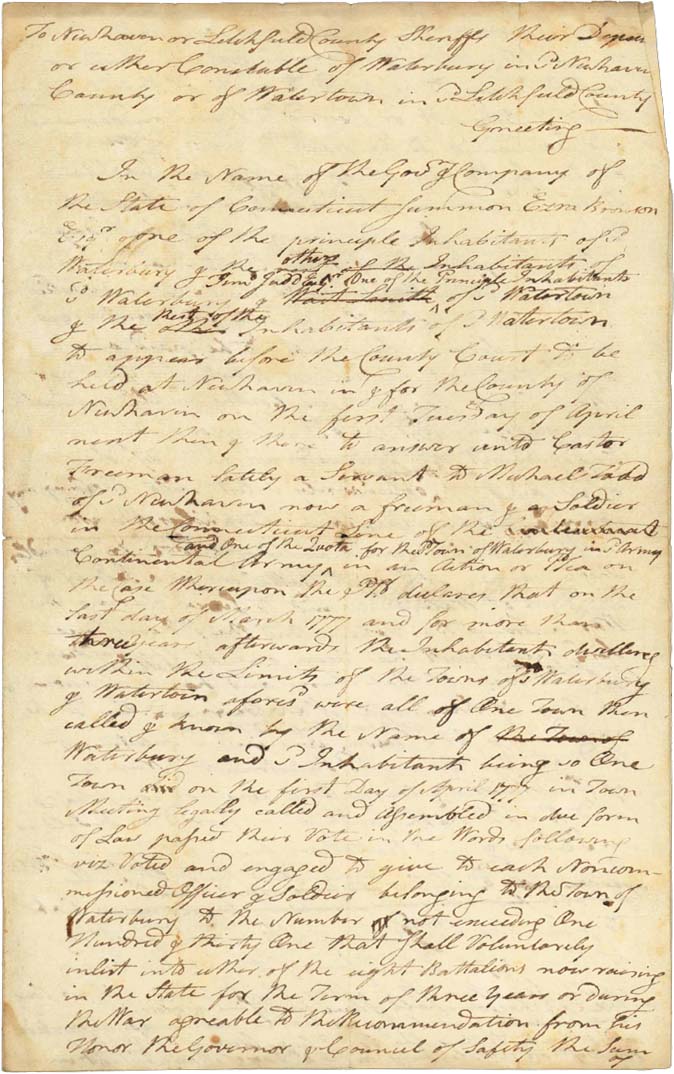 To Newhaven or Litchfield County Sheriffs their Deputy
or either Constable of Waterbury in sd Newhaven
County or of Watertown in sd Litchfield County
Greeting —
In the Name of the Govr & Company of
the State of Connecticut Summon Ezra Bronson
Esqr one of the principle Inhabitants of sd
Waterbury & the other Inhabitants of
sd Waterbury & Timo Judd Esqr One of the Principle Inhabitants of sd Watertown
& the Rest of the Inhabitants of sd Watertown
to appear before the County Court to be
held at Newhaven in & for the County of
Newhaven on the first Tuesday of April
next then & there to answer unto Castor
Freeman lately a Servant to Michael Todd
of sd Newhaven now a freeman & a Soldier
in the Connecticut Line of the
Continental Army and One of the Quota for the Town of Waterbury in sd Army in an Action or Plea on
the Case thereupon the Plt declares that on the
last day of March 1777 and for more than
three years afterwards the Inhabitants dwelling
within the Limits of the Towns of sd Waterbury
& Watertown aforesd were all of One Town then
called & known by the Name of the Town of
Waterbury and sd Inhabitants being so One
Town did on the first Day of April 1777 in Town
Meeting legally called and Assembled in due form
of Law passed their Vote in the Words following
viz Voted and engaged to give to each Noncom-
missioned Officer & Soldier belonging to the Town of
Waterbury to the Number of not exceeding One
Hundred & thirty One that Shall Voluntarely
inlist into either of the eight Battalions now raising
in the State for the Term of three Years or during
the War agreable to the Recommendation from his
Honor the Governor & Council of Safety the Sum